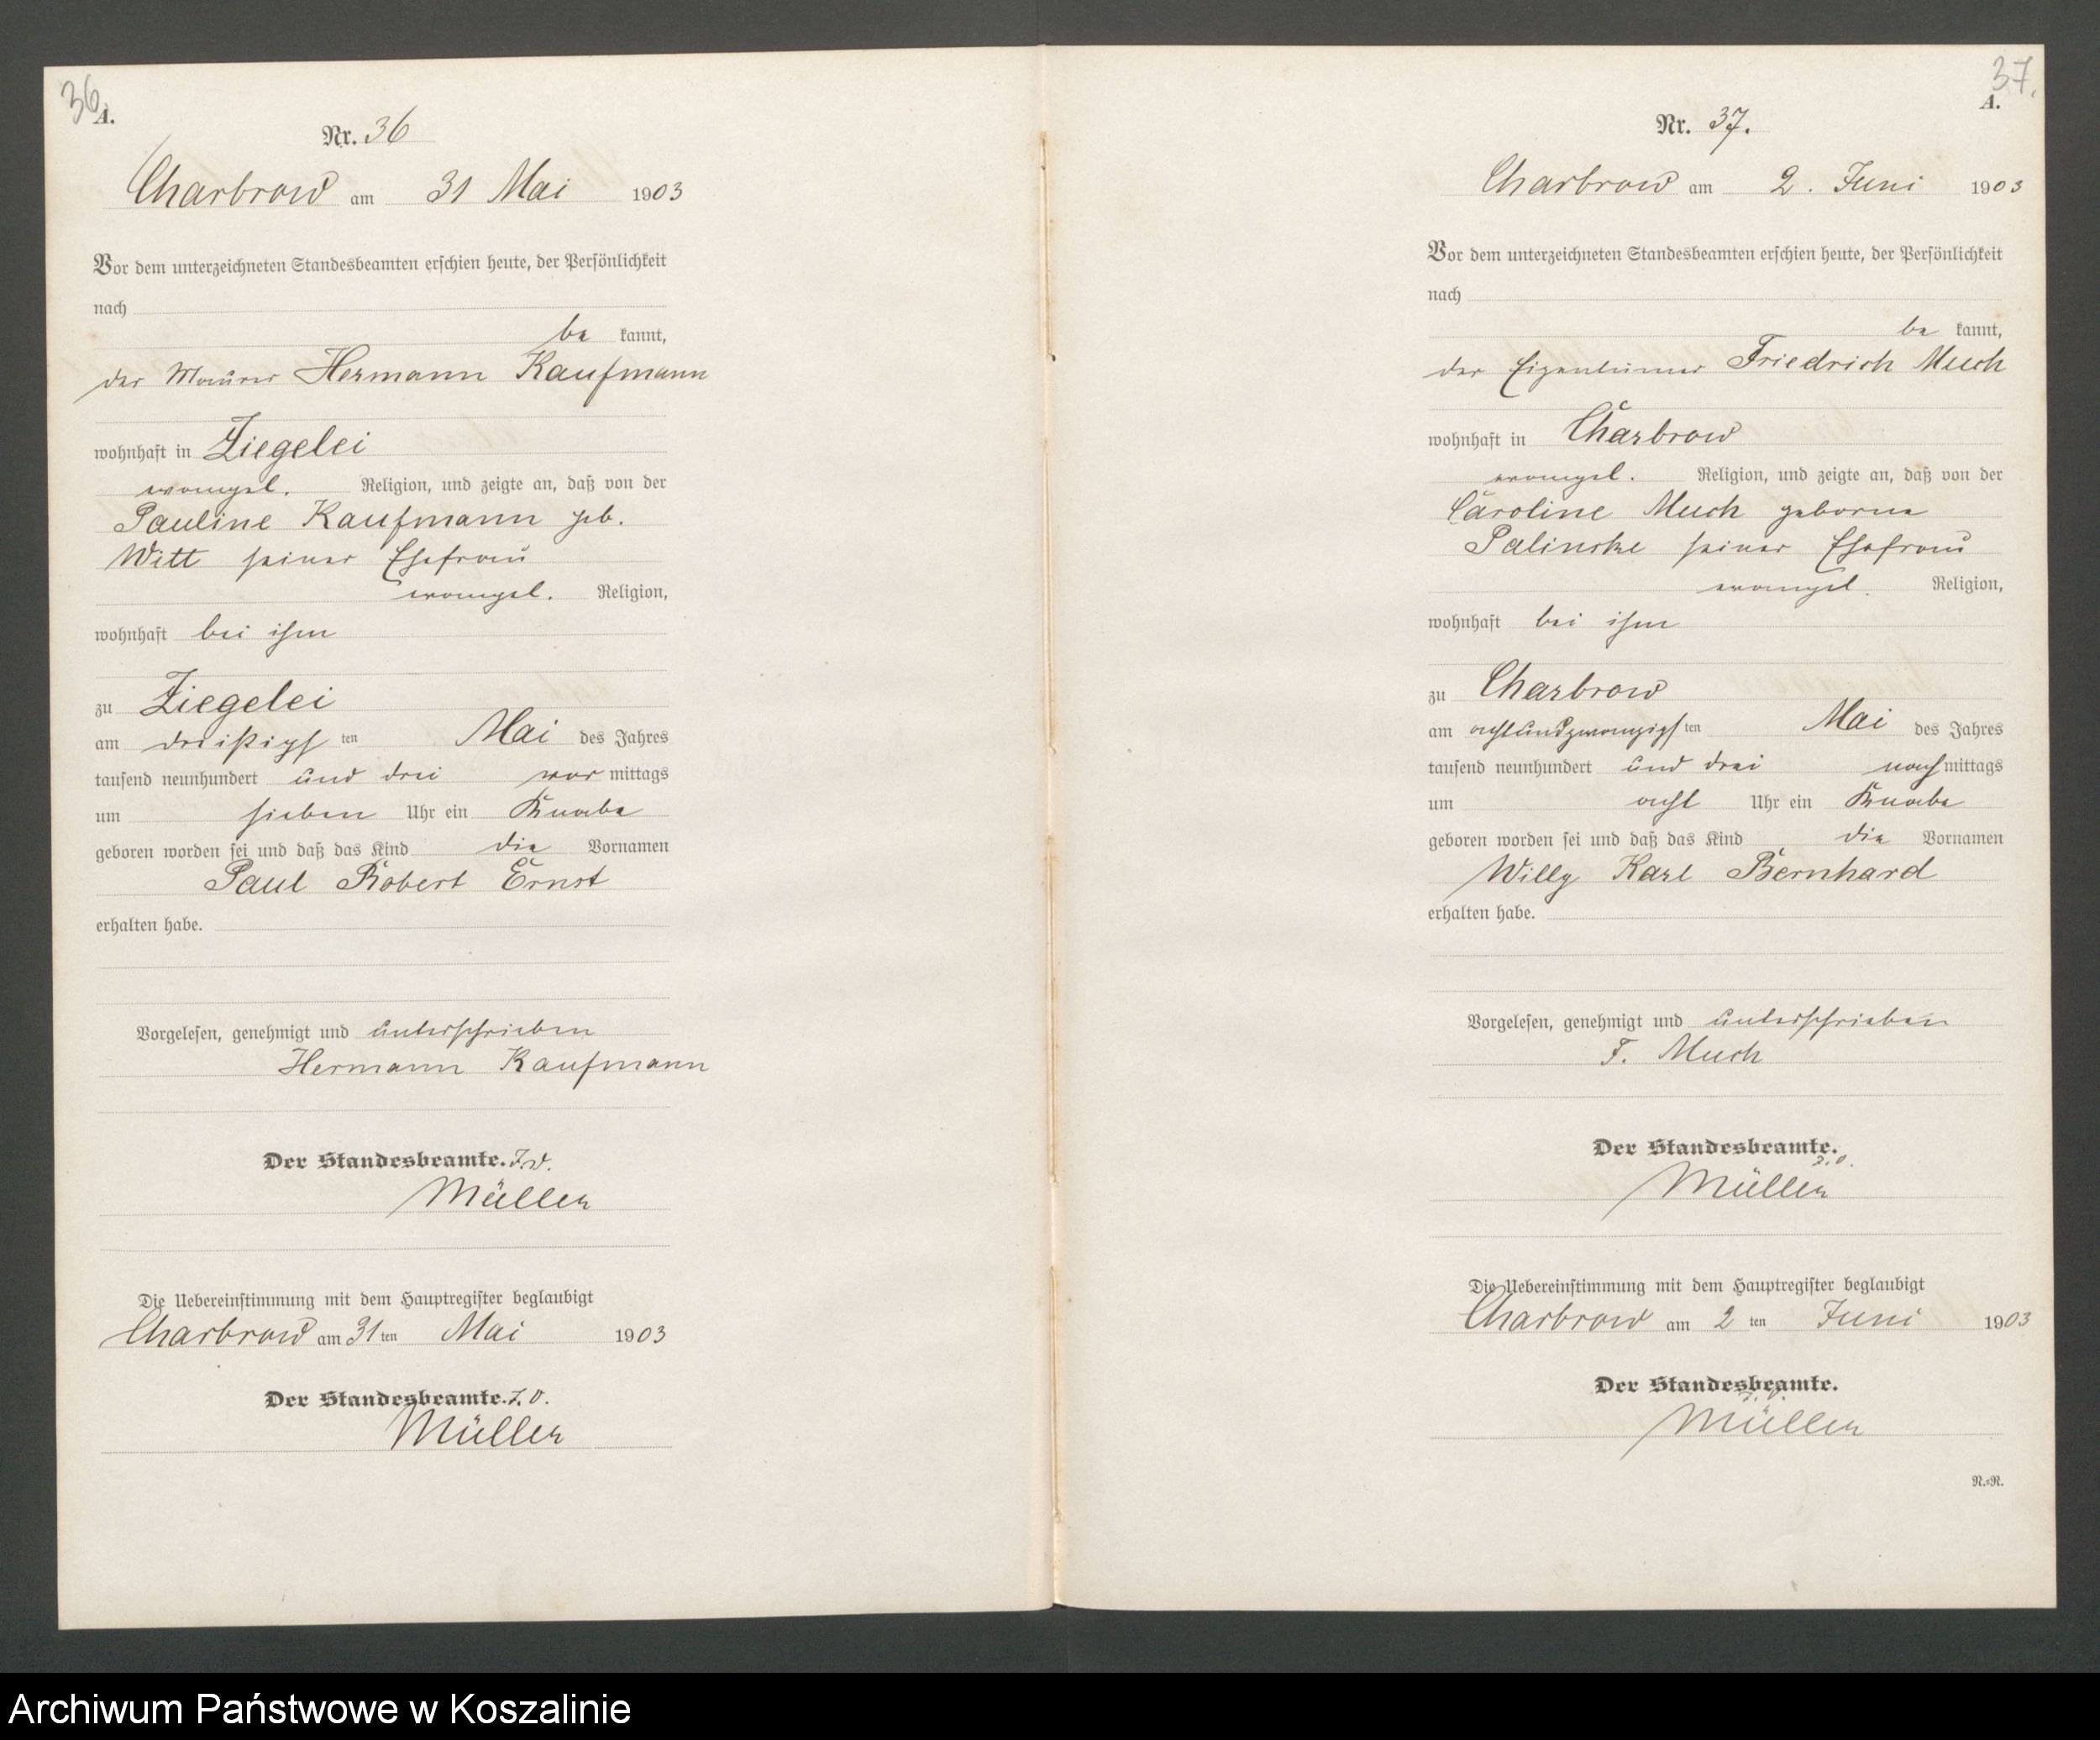 36.
A.
Nr. 36
Charbrow am 31 Mai 1903
Vor dem unterzeichneten Standesbeamten erschien heute, der Persönlichkeit
nach
be kannt,
der Maurer Hermann Kaufmann
wohnhaft in Ziegelei
evangel. Religion, und zeigte an, daß von der
Pauline Kaufmann geb.
Witt seiner Ehefrau
evangel. Religion,
wohnhaft bei ihm
zu Ziegelei
am dreißigsten Mai des Jahres
tausend neunhundert und drei vor mittags
um sieben Uhr ein Knabe
geboren worden sei und daß das Kind die Vornamen
Paul Robert Ernst
erhalten habe.
Vorgelesen, genehmigt und unterschrieben
Hermann Kaufmann
Der Standesbeamte. I.V.
Müller
Die Uebereinstimmung mit dem Hauptregister beglaubigt
Charbrow am 31 ten Mai 1903
Der Standesbeamte. I.V.
Müller
37.
A.
Nr. 37.
Charbrow am 2. Juni 1903
Vor dem unterzeichneten Standesbeamten erschien heute, der Persönlichkeit
nach
be kannt,
der Eigentümer Friedrich Much
wohnhaft in Charbrow
evangel. Religion, und zeigte an, daß von der
Caroline Much geborne
Palinske seiner Ehefrau
evangel. Religion,
wohnhaft bei ihm
zu Charbrow
am achtundzwanzigsten Mai des Jahres
tausend neunhundert und drei nach mittags
um acht Uhr ein Knabe
geboren worden sei und daß das Kind die Vornamen
Willy Karl Bernhard
erhalten habe.
Vorgelesen, genehmigt und unterschrieben
F. Much
Der Standesbeamte.
I.V.
Müller
Die Uebereinstimmung mit dem Hauptregister beglaubigt
Charbrow am 2 ten Juni 1903
Der Standesbeamte.
I.V.
Müller
N.=N.
Archiwum Państwowe w Koszalinie